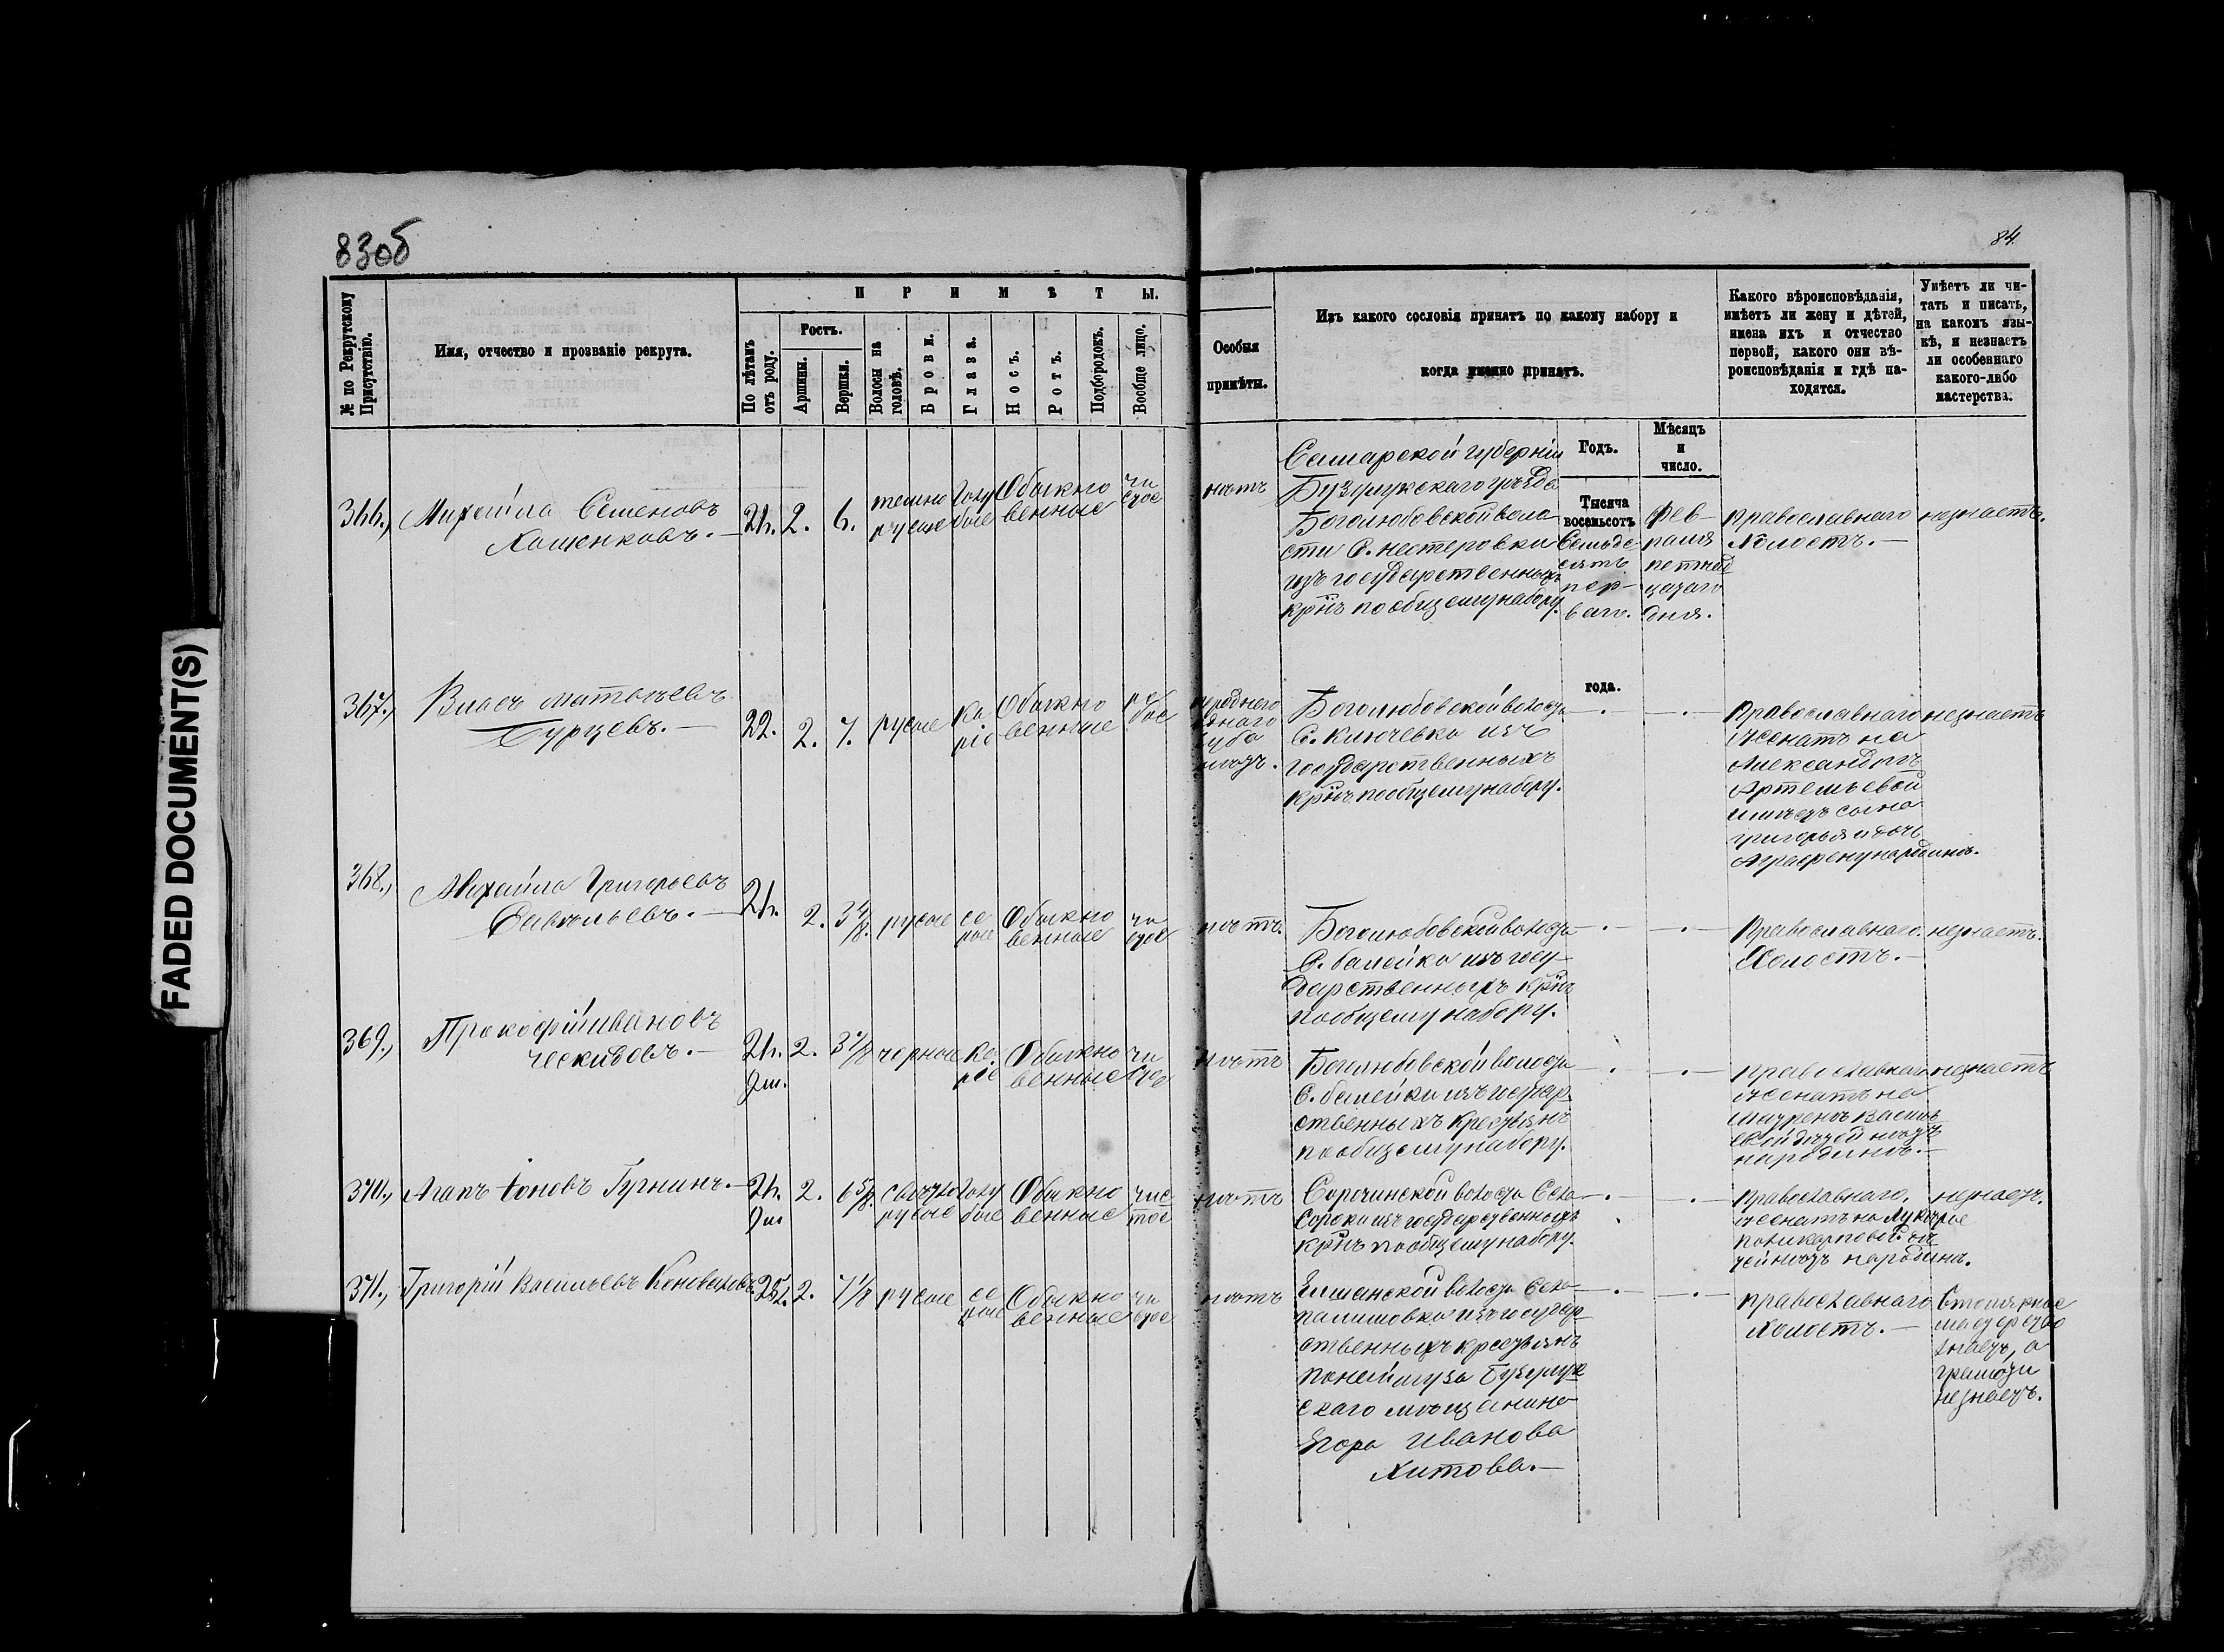 83об
84.
№ по Рекрутскому Присутствію.
Имя, отчество и прозваніе рекрута.
П Р И М Ѣ Т Ы.
По лѣтамъ отъ роду.
Ростъ.
Аршины.
Вершки.
Волосы на головѣ.
Брови.
Глаза.
Носъ.
Ротъ.
Подбородокъ.
Вообще лицо.
Особыя
примѣты.
Изъ какого сословія принятъ по какому набору и
когда именно принятъ.
Какого вѣроисповѣданія,
имѣетъ ли жену и дѣтей,
имена ихъ и отчество
первой, какого они вѣ-
роисповѣданія и гдѣ на-
ходятся.
Умѣетъ ли чи-
тать и писать,
на какомъ язы-
кѣ, и незнаетъ
ли особеннаго
какого-либо
мастерства.
Годъ.
Мѣсяцъ
и
число.
366.,
Михайла Семеновъ
Хощенковъ.—
21.
2.
6.
темно
русые
Голу
бые
Обыкно
венные
чи
стое
нѣтъ
Самарской губерніи
Бузулукскаго уѣзда
Боголюбовской воло
сти С. нестеровки
изъ государственныхъ
крнъ пообщему набору.
Тысяча
восемьсотъ
Семьде
сятъ
пер-
ваго.
года.
Фев-
раля
петнад
цатаго
дня.
Православнаго
Холостъ.—
незнаетъ.
367.,
Власъ Матвѣевъ
Бурцевъ.—
22.
2.
7.
русые
Ка
ріе
Обыкно
венные
ря
бое
переднего
однаго
зуба
нѣтъ.
Боголюбовской волости
С. Ключевка изъ
государственныхъ
крнъ пообщему набору.
Православнаго
женатъ на
Александрѣ
Артемьевой
имѣетъ сына
григорья и дочь
Аграфену народинѣ.
незнаетъ
368.,
Михайла Григорьевъ
Савельевъ.—
21.
2.
3 4/8.
русые
се
рые
Обыкно
венные
чи
стое
нѣтъ.
Боголюбовской волости
С. балейка изъ госу-
дарственныхъ крнъ
пообщему набору.
Православнаго.
Холостъ.—
незнаетъ.
369.,
Прокофій Ивановъ
21.
2.
3 7/8
чорные
Ка
ріе
Обыкно
венные
чи
стое
нѣтъ
Боголюбовской волости
С. балейки изъ государ
ственныхъ крестьянъ
пообщему набору.
Православнаго
женатъ на
Мауренѣ Василь
евой дѣтей нѣтъ
народинѣ.—
незнаетъ
370.,
Агапъ Іоновъ Гугнинъ.—
21.
2.
6 5/8.
свѣтло
русые
Голу
бые
Обыкно
венные
чис
тое
нѣтъ
Сорочинской волости Села
Сороки изъ государственныхъ
крнъ пообщему набору.
Православнаго.
женатъ на Лукерье
Поликарповой дѣ
тей нѣтъ народинѣ.
незнаетъ.
371.,
Григорій Васильевъ Коноваловъ.
2.
7 1/8
русые
се
рые
Обыкно
венные
чи
стое
нѣтъ
Елшанской волости Села
палимовка изъ государ
ственныхъ крестьянъ
понайму за Бузулук
скаго мѣщанина
Егора Иванова
Хитова.—
Православнаго
Холостъ.—
Столярное
мастерство
знаетъ, а
грамоти
незнаетъ.
FADED DOCUMENT(S)